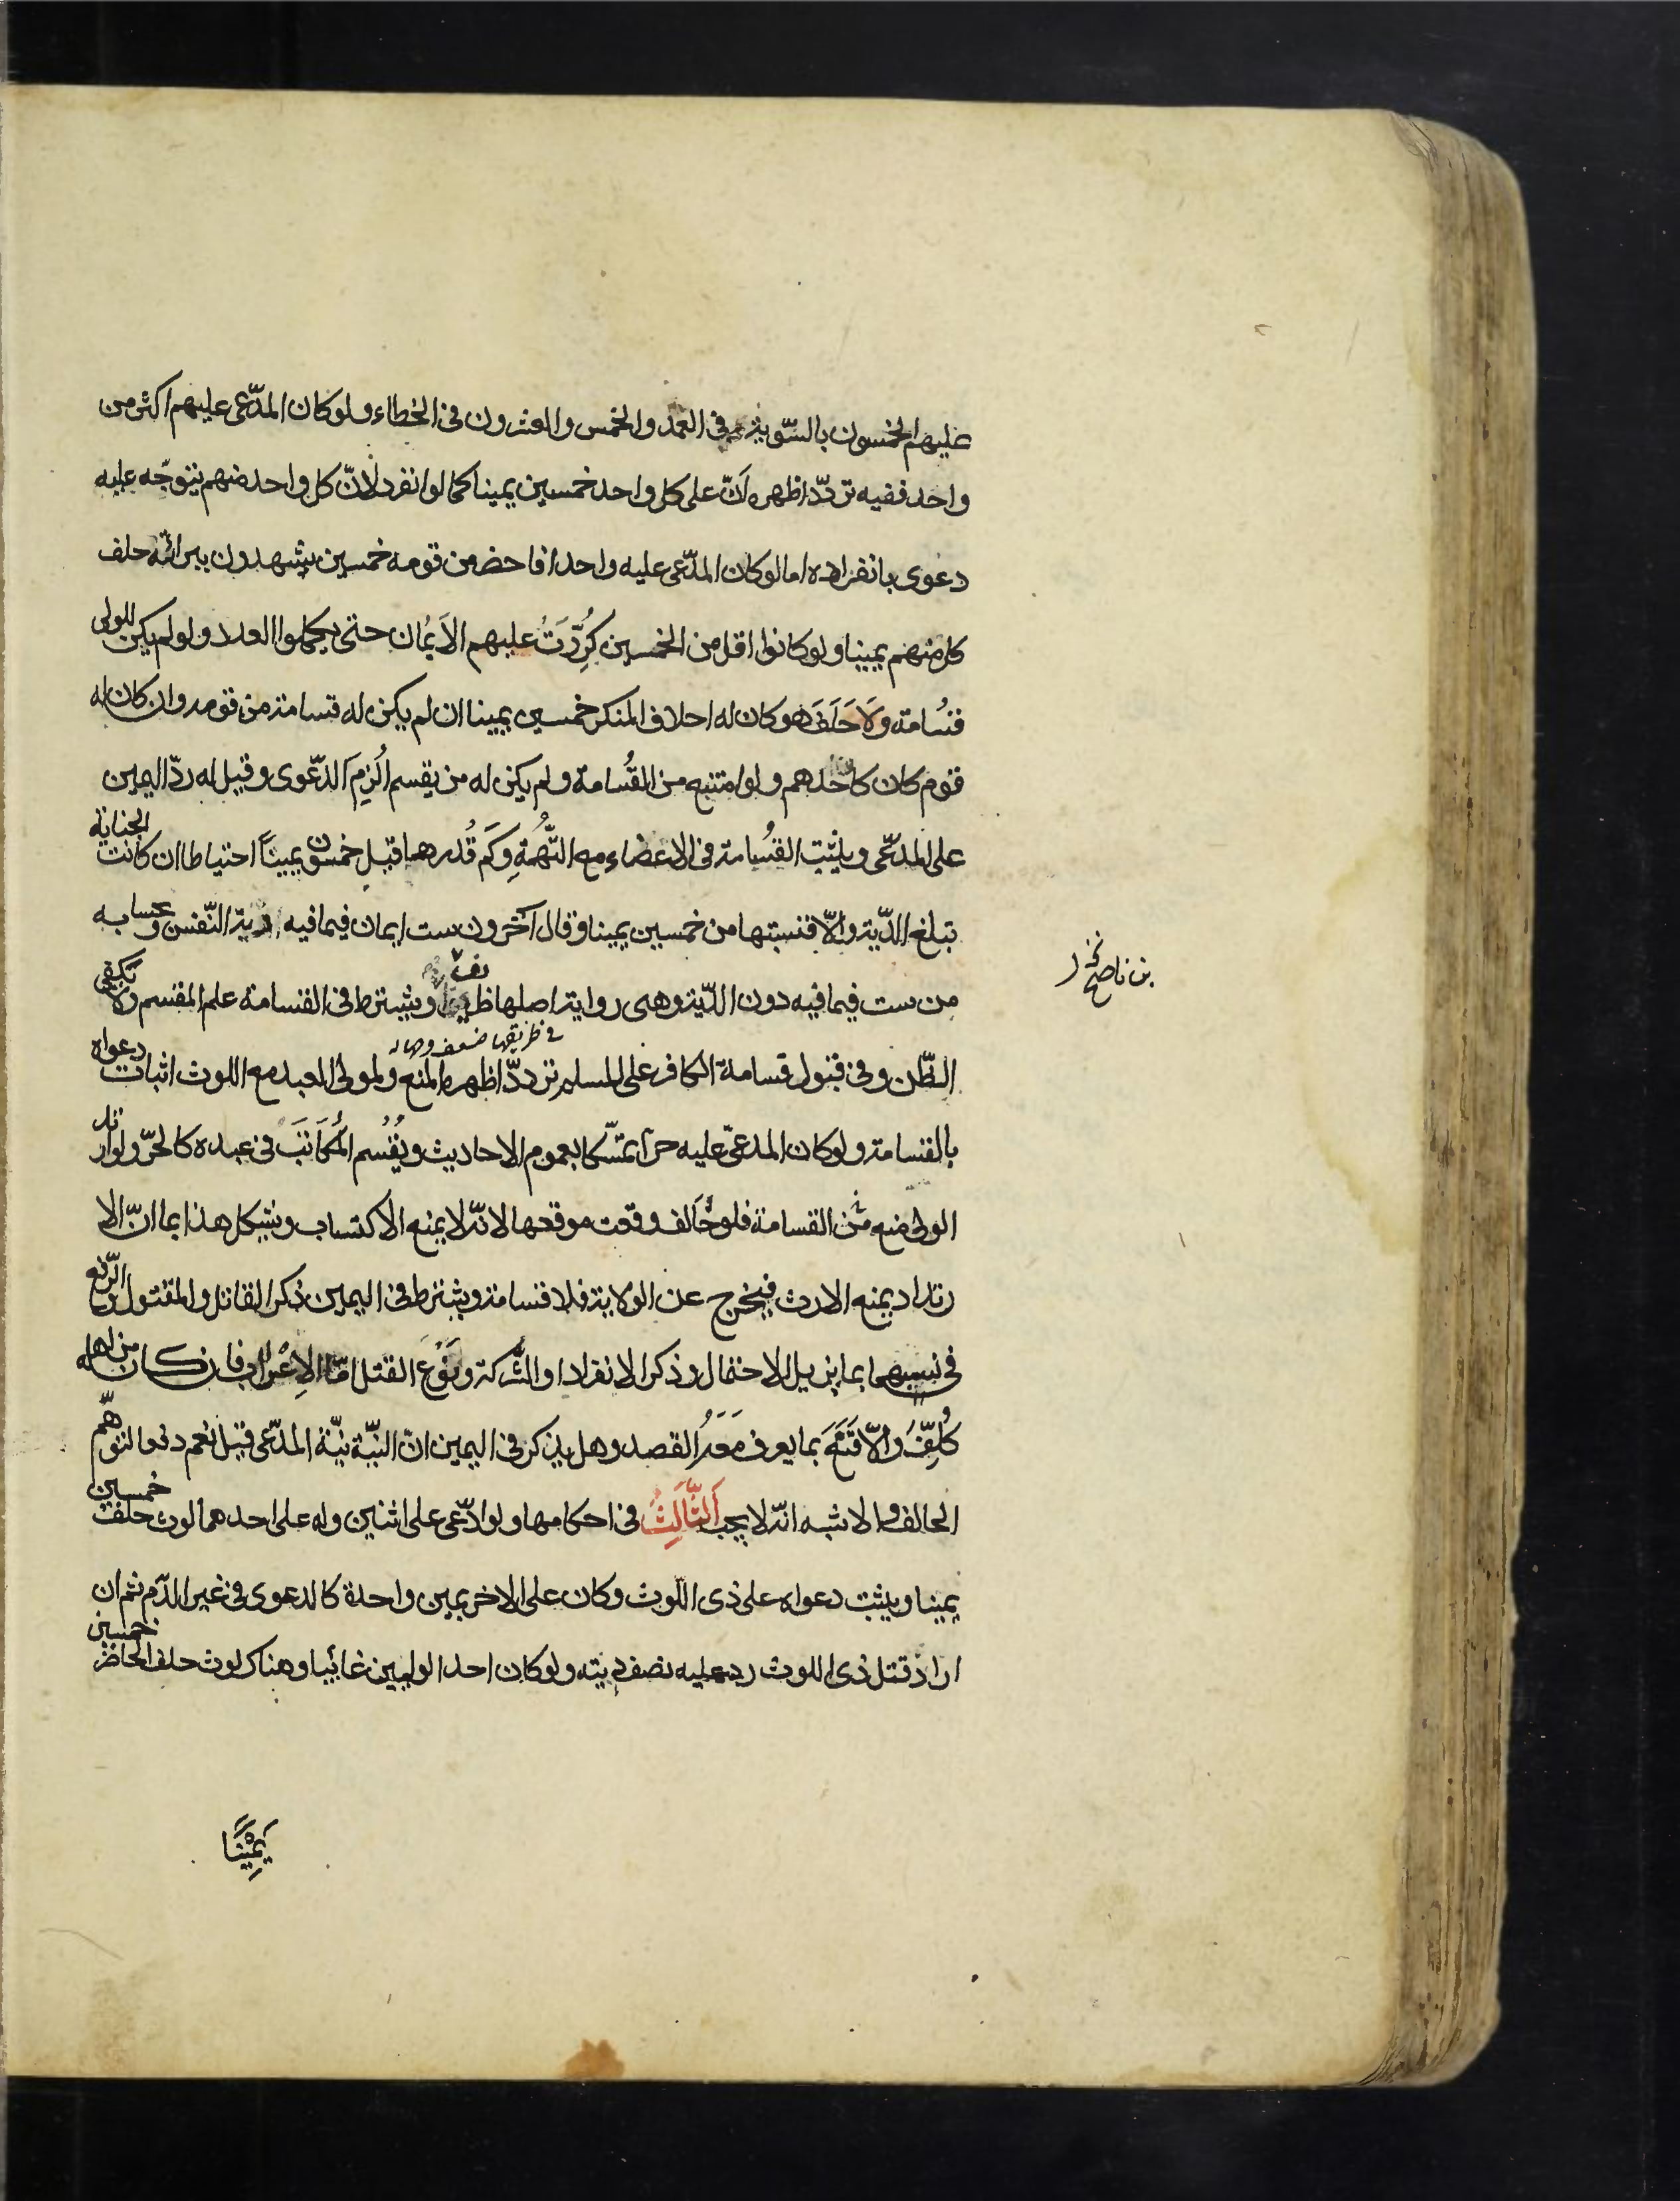 عليهم الخمسون بالسّويّة في العمد والخمس والعشرون في الخطاء ولو كان المدّعى عليهم اكثر من
واحد ففيه تردّد اظهره انّ على كل واحد خمسين يمينا كما لو انفرد لانّ كل واحد منهم يتوجّه عليه
دعوى بانفراده اما لو كان المدّعى عليه واحدا فاحضر من قومه خمسين يشهدون ببرائته حلف
كل منهم يمينا ولو كانوا اقل من الخمسين كُرِّرَتْ عليهم الاَيمان حتى يكملوا العدد ولو لم يكن للولى
قسُامة ولَا حَلَفَ هو كان له احلاف المنكر خمسين يمينا ان لم يكن له قسامة من قومه وان كان له
قوم كان كاحدهم ولو امتنع من القُسامة ولم يكن له من يقسم اُلزِمَ الدّعوى وقيل له ردّ اليمين
على المدّعى ويثبت القسُامة فى الاعضاء مع التُّهمَةِ وكَم قُدرها قيل خمسون يميناً احتياطا ان كانت الجناية
تبلغ الدّية والّا فنسبتها من خمسين يمينا وقال آخرون ست ايمان فيما فيه دية النّفس وبحسابه
من ست فيما فيه دون الدّية وهى رواية اصلها ظريف ويشترط فى القسامة علم المقسم ولا تكفى
فى طريقها ضعف
بن ناصح
الظّن وفى قبول قسامة الكافر على المسلم تردّد اظهره المنع ولمولى العبد مع اللوث اثبات دعواه
بالقسامة ولو كان المدعىّ عليه حرّا تمسّكا بعموم الاحاديث ويُقُسم المُكَاتَبَ فى عبده كالحرّ ولو ارتد
الولى منع من القسامة فلو خَالف وقعت موقعها لانّه لا يمنع الاكتساب ويشكل هذا بما انّ الا
رتداد يمنع الارث فيخرج عن الولاية فلا قسامة ويشترط فى اليمين ذكر القاتل والمقتول والرّفع
فى نسبهما بما يزيل الاحتمال وذكر الانفراد او الشّركة ونَوْع القتل امّا الاِعْراب فان كان من اهله
كُلِّفَ والّا قَنَعَ بما يعرف مَعَهُ القصد وهل يذكر فى اليمين انّ النيّة نيّة المدّعى قيل نعم دفعا لتوهّم
الحالف والاشبه انّه لا يجب اَلثَّالِثُ فى احكامها ولو ادّعى على اثنين وله على احدهما لوث حلف خمسين
يمينا ويثبت دعواه على ذى اللّوث وكان على الاخر يمين واحدة كالدعوى فى غير الدّم ثم ان
اراد قتل ذى اللوث رد عليه نصف ديته ولو كان احد الوليين غائبا وهناك لوث حلف الحاضر خمسين
يَمِيْنًا